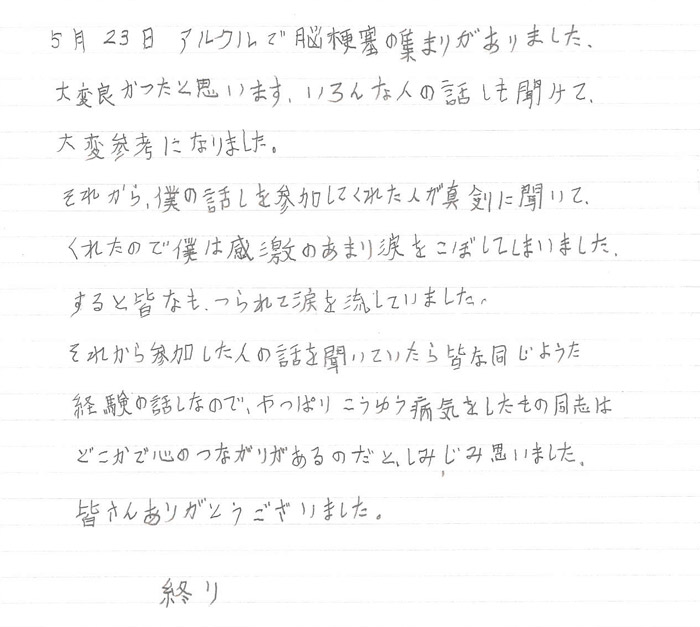 5月23日 アルクルで脳梗塞の集まりがありました、
大変良かつたと思います、いろんな人の話しも聞けて、
大変参考になりました。
それから、僕の話しを参加してくれた人が真剣に聞いて、
くれたので僕は感激のあまり涙をこぼしてしまいました、
すると皆なも、つられて涙を流していました、
それから参加した人の話を聞いていたら皆な同じような
経験の話しなので、やっぱりこうゆう病気をしたもの同志は
どこかで心のつながりがあるのだと、しみじみ思いました、
皆さんありがとうございました。
終り